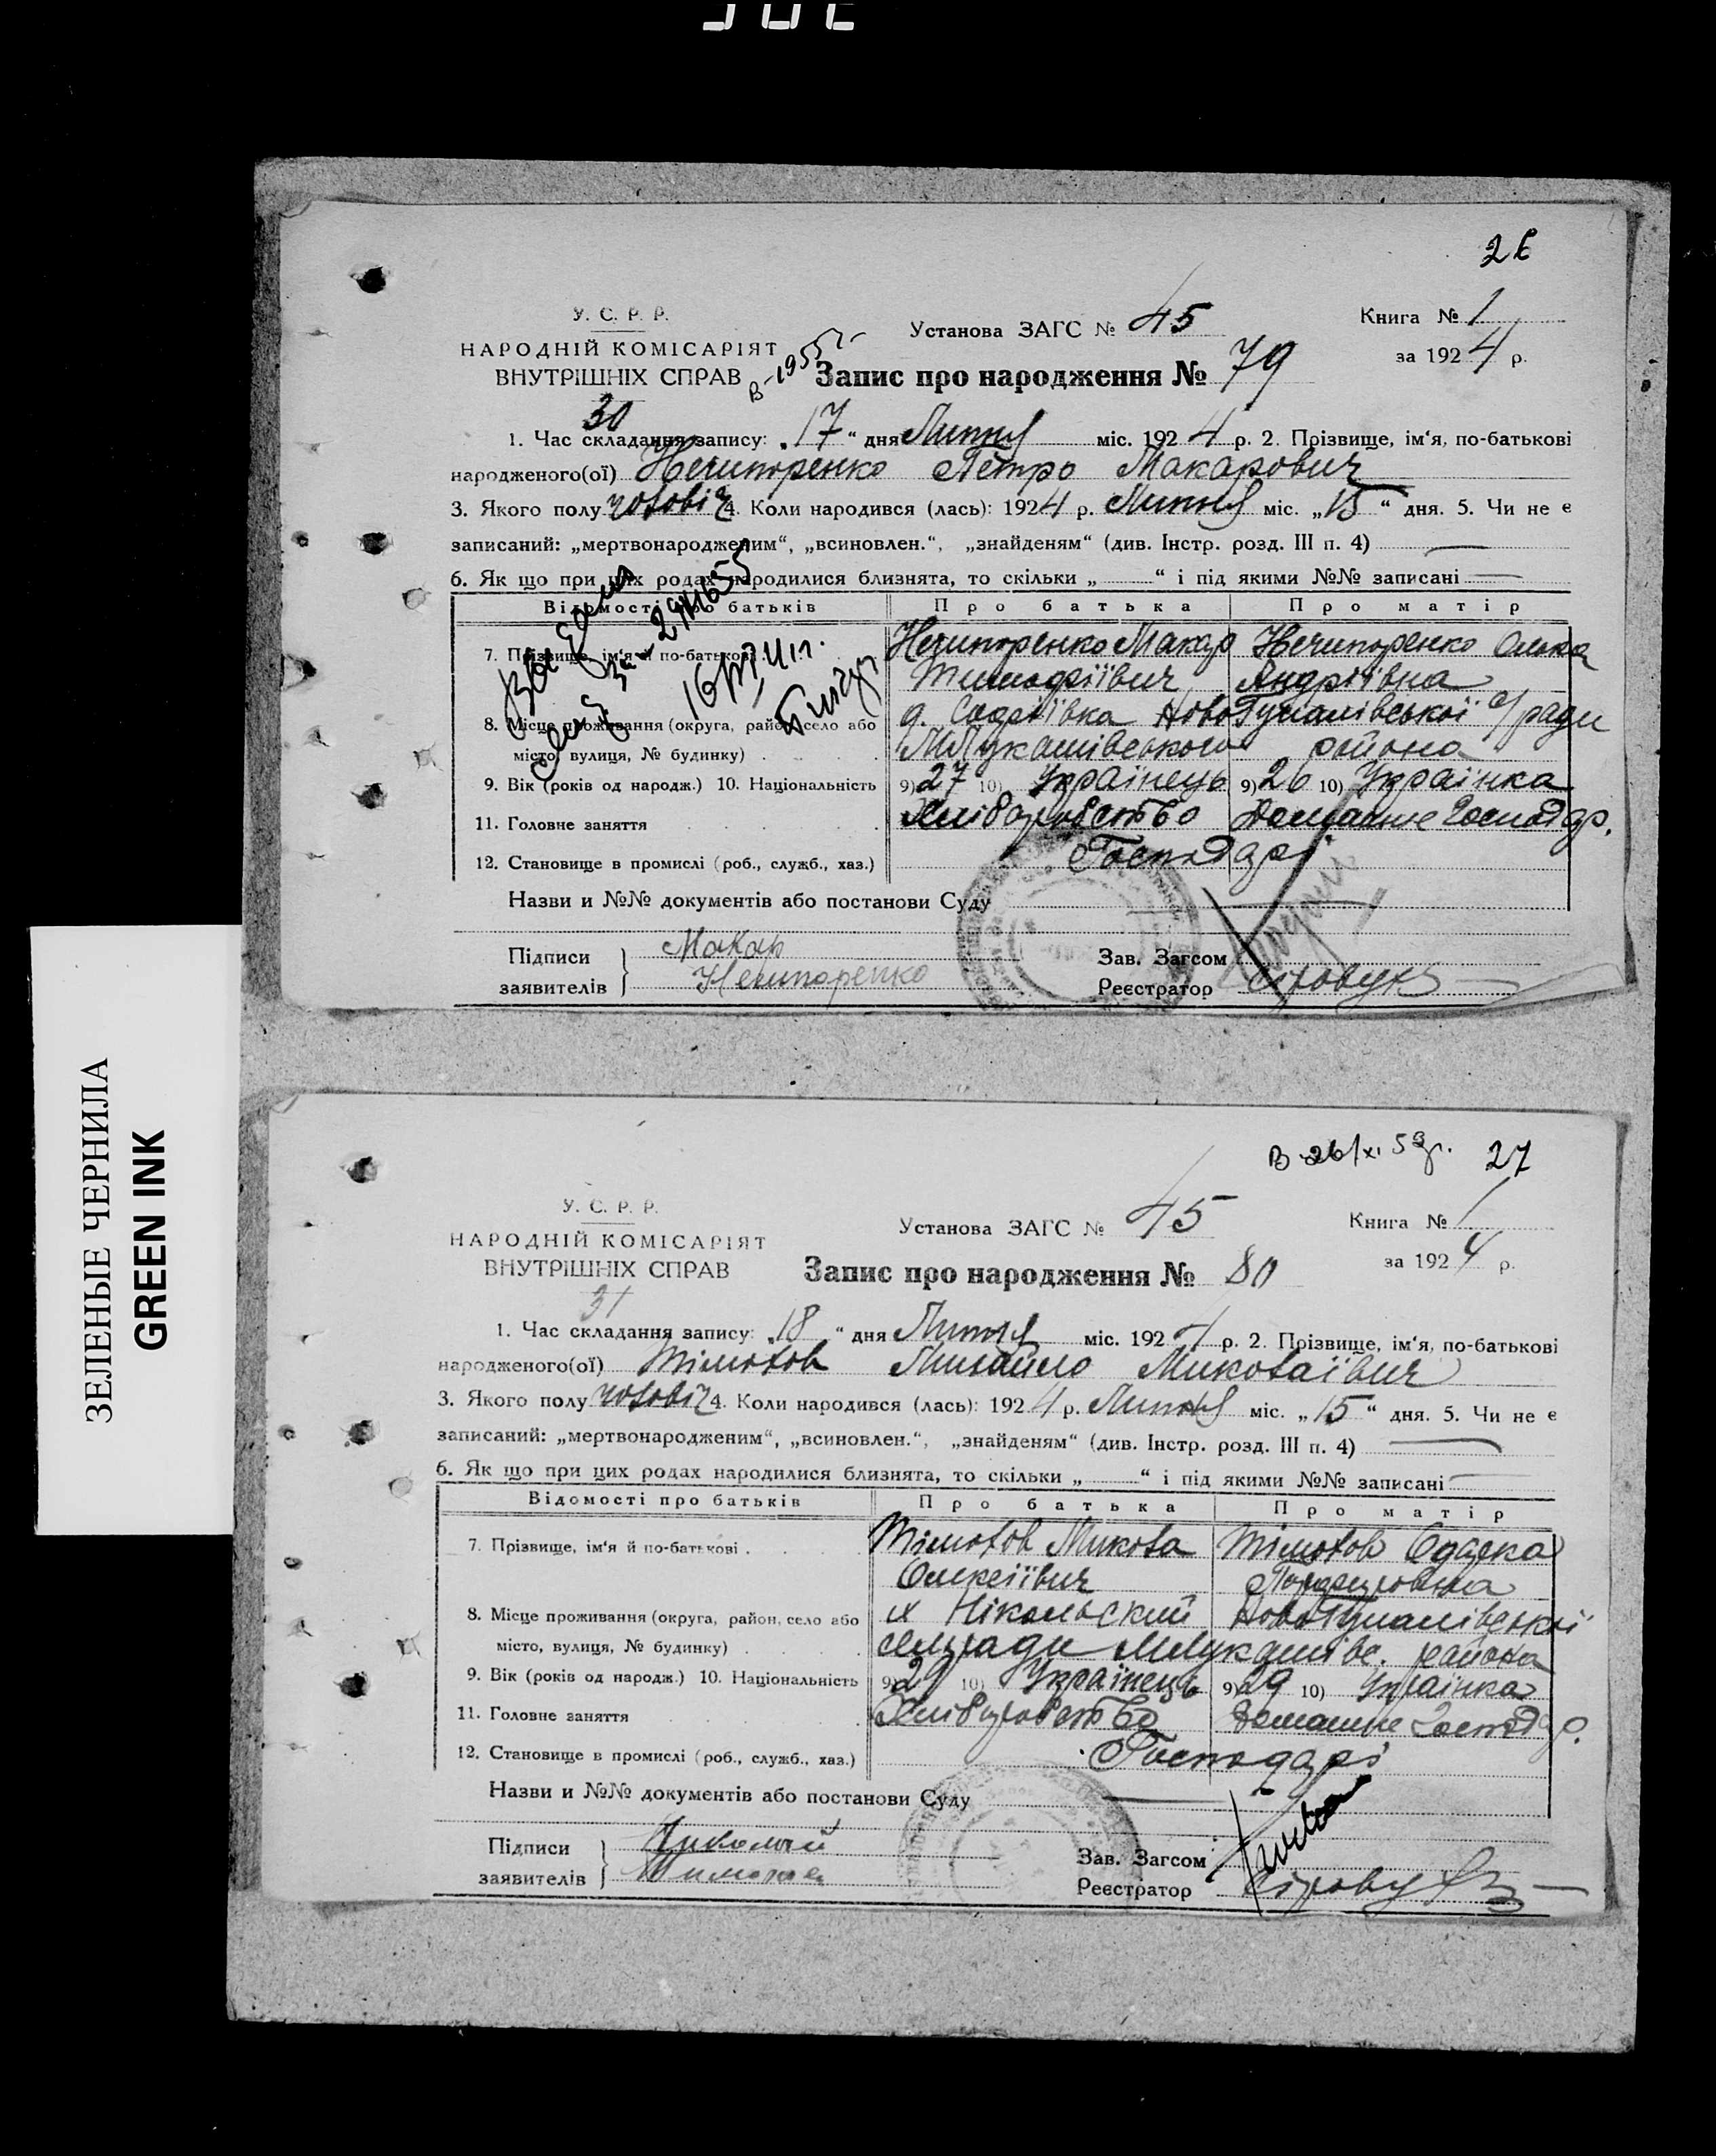 26
У. С. Р. Р.
НАРОДНІЙ КОМІСАРІЯТ
ВНУТРІШНІХ СПРАВ
Установа ЗАГС № 45
Книга № 1
за 1924 р.
Запис про народження № 79
30
1. Час складання запису: „17“ дня Липня міс. 1924 р. 2. Прізвище, ім‘я, по-батькові
народженого(ої) Нечипоренко Петро Макарович
3. Якого полу чоловіч 4. Коли народився (лась): 1924 р. Липня міс. „15“ дня. 5. Чи не є
записаний: „мертвонародженим“, „всиновлен.“, „знайденям“ (див. Інстр. розд. III п. 4)
6. Як що при цих родах народилися близнята, то скільки „ “ і під якими №№ записані
Відомості про батьків Про батька Про матір
7. Прізвище, ім‘я й по-батькові Нечипоренко Макар Нечипоренко
Тимофіївич Андріївна
8. Місце проживання (округа, район, село або НовоГупалівської с/ради
місто, вулиця, № будинку) району
9. Вік (років од народж.) 10. Національність 9) 27 10) Українець 9) 26 10) Українка
11. Головне заняття Хліборобство Домашнє господар.
12. Становище в промислі (роб., служб., хаз.) Господарі
Назви и №№ документів або постанови Суду
Підписи Макар
заявителів Нечипоренко
Зав. Загсом
Реєстратор
ЗЕЛЕНЫЕ ЧЕРНИЛА
GREEN INK
27
У. С. Р. Р.
НАРОДНІЙ КОМІСАРІЯТ
ВНУТРІШНІХ СПРАВ
Установа ЗАГС № 45
Книга № 1
за 1924 р.
Запис про народження № 80
31
1. Час складання запису: „18“ дня Липня міс. 1924 р. 2. Прізвище, ім‘я, по-батькові
народженого(ої) Михайло Миколаївич
3. Якого полу чоловіч 4. Коли народився (лась): 1924 р. Липня міс. „15“ дня. 5. Чи не є
записаний: „мертвонародженим“, „всиновлен.“, „знайденям“ (див. Інстр. розд. III п. 4)
6. Як що при цих родах народилися близнята, то скільки „ “ і під якими №№ записані
Відомості про батьків Про батька Про матір
7. Прізвище, ім‘я й по-батькові Микола
Олексіївич
8. Місце проживання (округа, район, село або х Нікольский НовоГупалівської
місто, вулиця, № будинку) сельради району
9. Вік (років од народж.) 10. Національність 9) 29 10) Українець 9) 29 10) Українка
11. Головне заняття Хліборобство Домашнє господар.
12. Становище в промислі (роб., служб., хаз.) Господарі
Назви и №№ документів або постанови Суду
Підписи Николай
заявителів
Зав. Загсом
Реєстратор